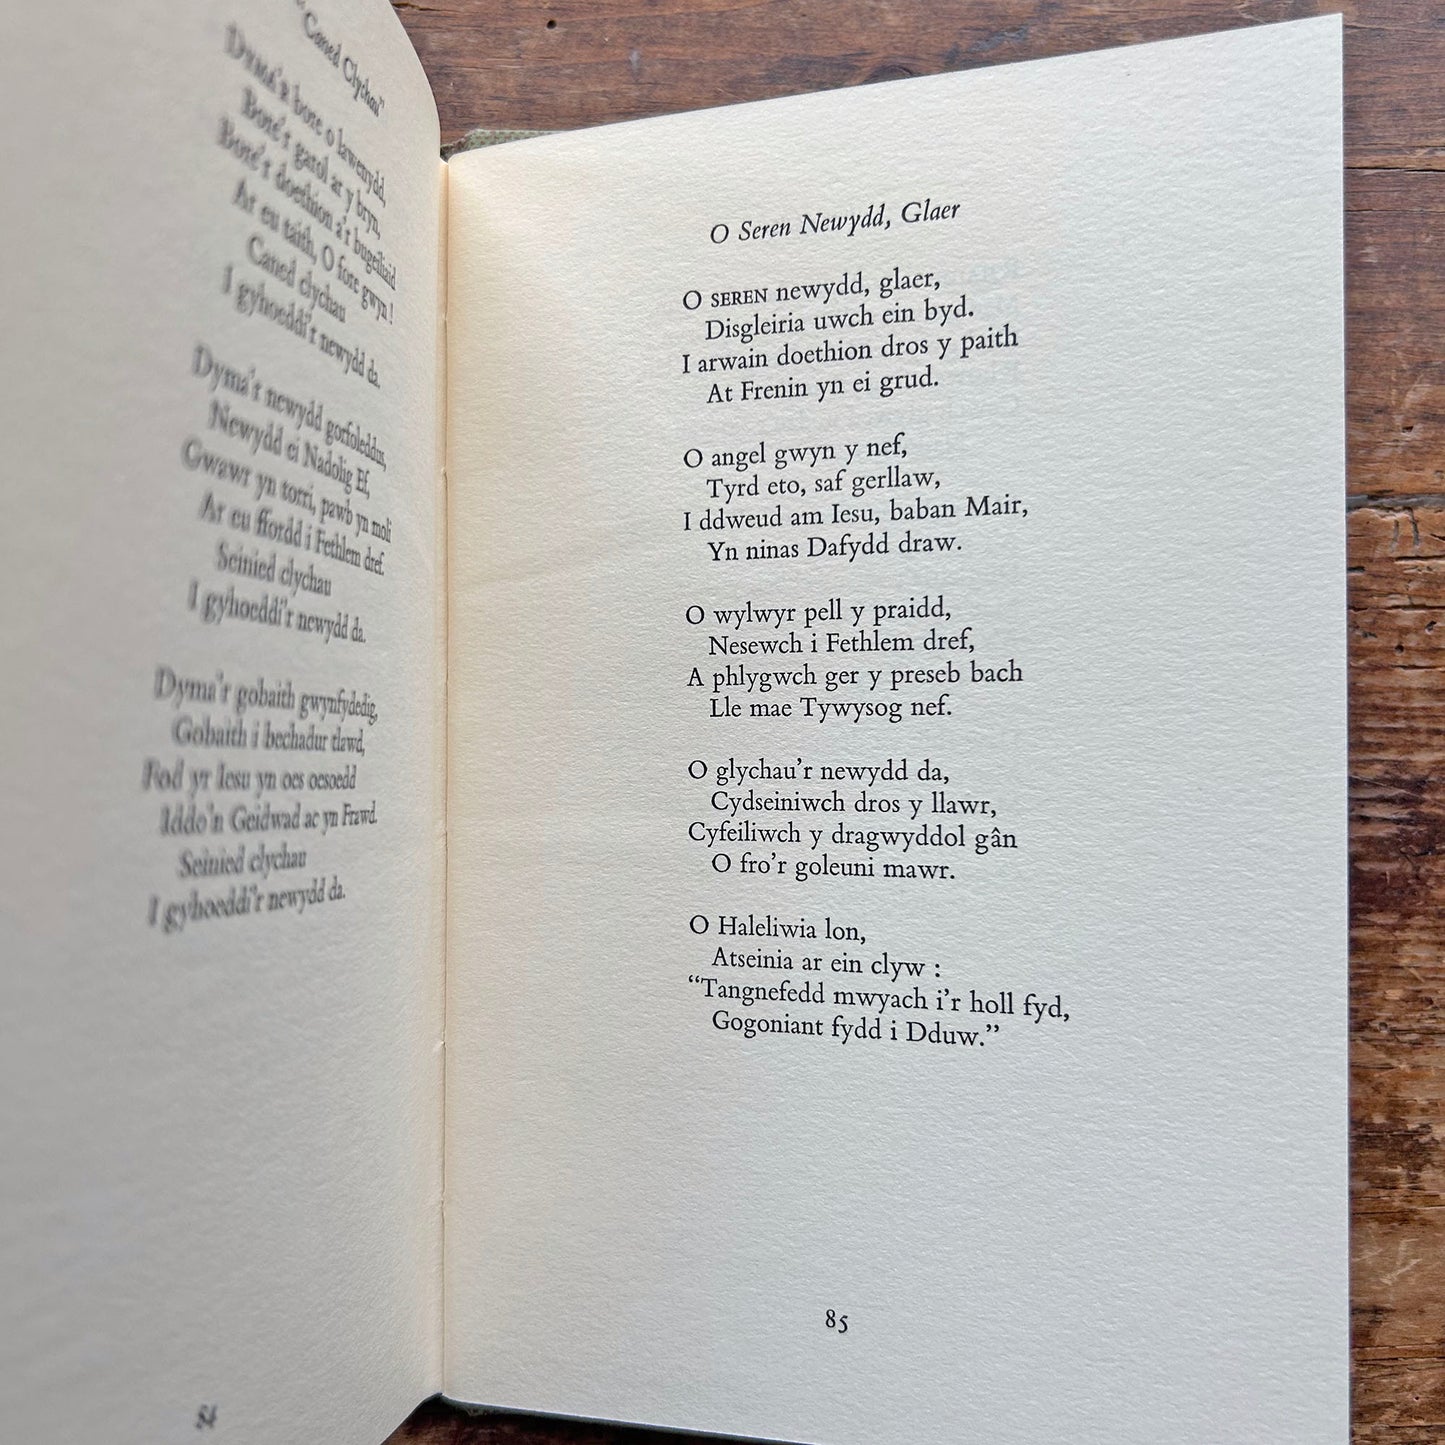 "Caned Clychau"
DYMA'R bore o lawenydd,
Bore'r garol ar y bryn,
Bore'r doethion a'r bugeiliaid
Ar eu taith, O fore gwyn !
Caned clychau
I gyhoeddi'r newydd da.
Dyma'r newydd gorfoleddus,
Newydd ei Nadolig Ef,
Gwawr yn torri, pawb yn moli
Ar eu ffordd i Fethlem dref.
Seinied clychau
I gyhoeddi'r newydd da.
Dyma'r gobaith gwynfydedig,
Gobaith i bechadur tlawd,
Fod yr Iesu yn oes oesoedd
Iddo'n Geidwad ac yn Frawd.
Seinied clychau
I gyhoeddi'r newydd da.
84
O Seren Newydd, Glaer
O SEREN newydd, glaer,
Disgleiria uwch ein byd.
I arwain doethion dros y paith
At Frenin yn ei grud.
O angel gwyn y nef,
Tyrd eto, saf gerllaw,
I ddweud am Iesu, baban Mair,
Yn ninas Dafydd draw.
O wylwyr pell y praidd,
Nesewch i Fethlem dref,
A phlygwch ger y preseb bach
Lle mae Tywysog nef.
O glychau'r newydd da,
Cydseiniwch dros y llawr,
Cyfeiliwch y dragwyddol gân
O fro'r goleuni mawr.
O Haleliwia lon,
Atseinia ar ein clyw :
“Tangnefedd mwyach i'r holl fyd,
Gogoniant fydd i Dduw.”
85